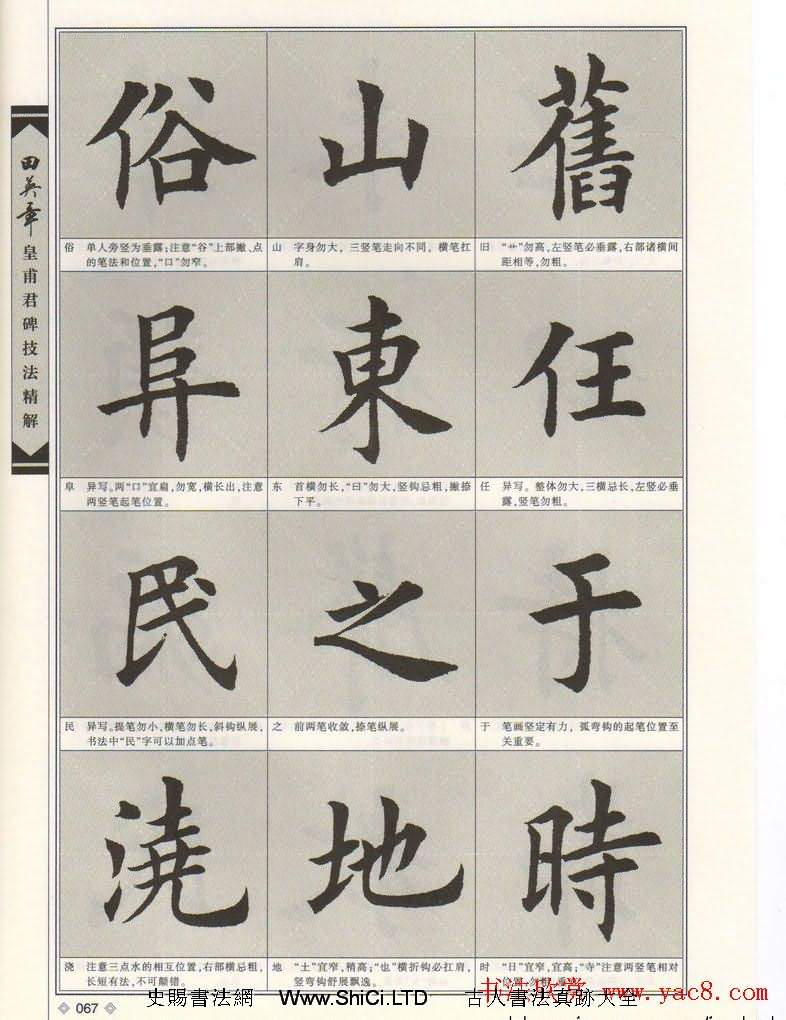 田英章
皇甫君碑技法精解
俗 山 舊
俗 单人旁竖为垂露；注意“谷”上部撇、点
的笔法和位置，“口”勿窄。
山 字身勿大，三竖笔走向不同，横笔扛
肩。
旧 “艹”勿高，左竖笔必垂露，右部诸横间
距相等，勿粗。
阜 東 任
阜 异写。两“口”宜扁，勿宽，横长出，注意
两竖笔起笔位置。
东 首横勿长，“日”勿大，竖钩忌粗，撇捺
下平。
任 异写。整体勿大，三横忌长，左竖必垂
露，竖笔勿粗。
民 之 于
民 异写。提笔勿小，横笔勿长，斜钩纵展，
书法中“民”字可以加点笔。
之 前两笔收敛，捺笔纵展。
于 笔画坚定有力，弧弯钩的起笔位置至
关重要。
澆 地 時
浇 注意三点水的相互位置，右部横忌粗，
长短有法，不可颠错。
地 “土”宜窄，稍高；“也”横折钩必扛肩，
竖弯钩舒展飘逸。
时 “日”宜窄，宜高；“寺”注意两竖笔相对
067
史賜書法網 Www.ShiCi.LTD 古人書法真跡大全
书法欣赏 www.yac8.com